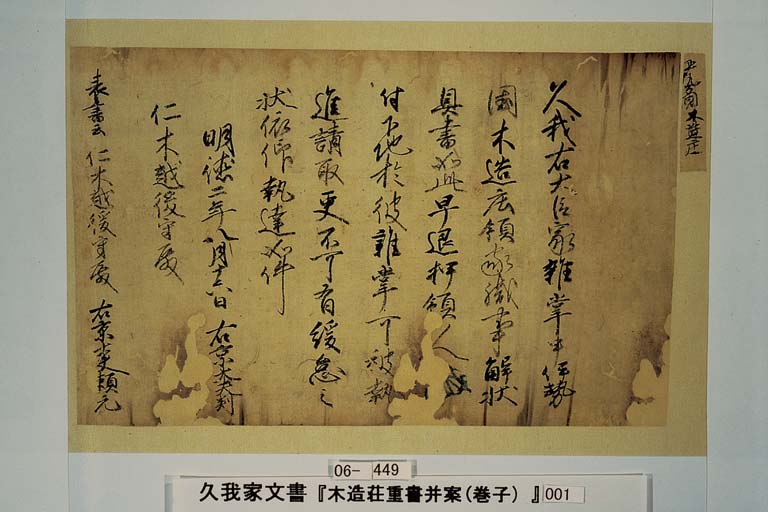 久我右大臣家雑掌申伊勢
国木造庄領家職事解状
具書如此早退押領人
付下地於彼雑掌可被執
進請取更不可有緩怠之
状依仰執達如件
明徳二年八月十六日 右京大夫判
仁木越後守殿
表書云 仁木越後守殿 右京大夫頼元
06-449
久我家文書『木造荘重書并案(巻子)』001